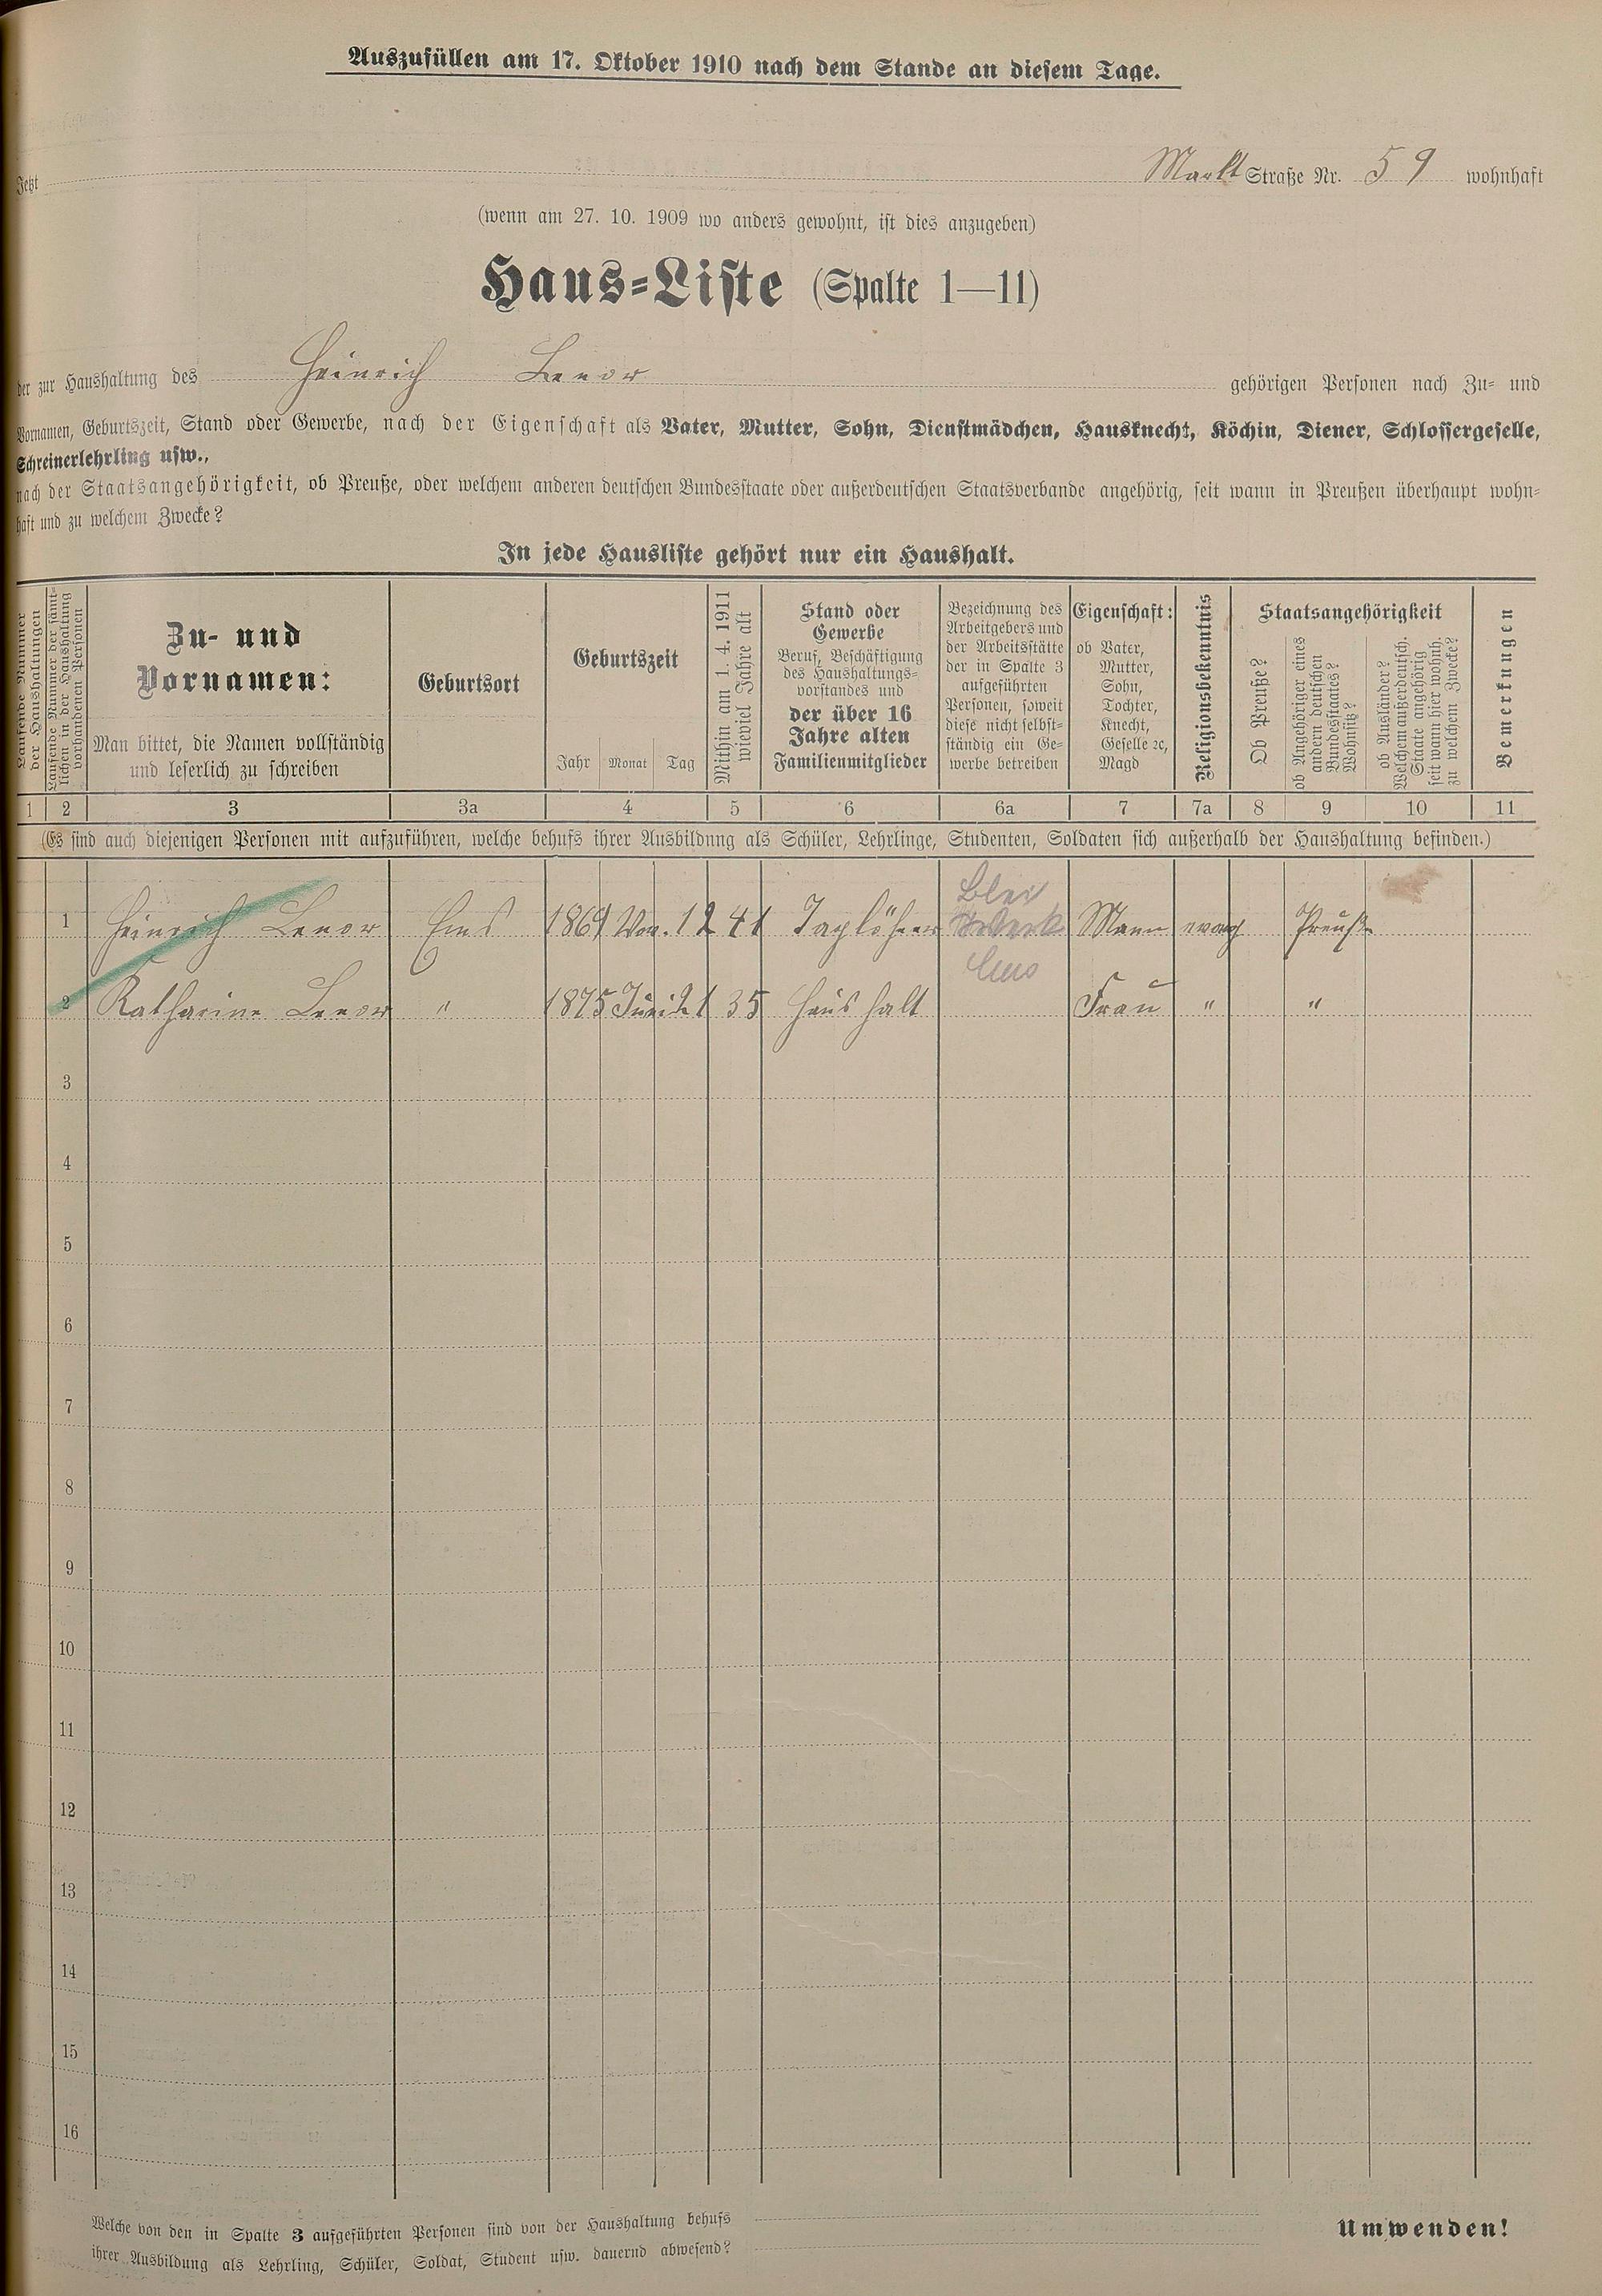 Auszufüllen am 17. Oktober 1910 nach dem Stande an diesem Tage.
Jetzt Markt Straße Nr. 59 wohnhaft
(wenn am 27. 10. 1909 wo anders gewohnt, ist dies anzugeben)
Haus-Liste (Spalte 1—11)
der zur Haushaltung des Heinrich Lenor gehörigen Personen nach Zu- und
Vornamen, Geburtszeit, Stand oder Gewerbe, nach der Eigenschaft als Vater, Mutter, Sohn, Dienstmädchen, Hausknecht, Köchin, Diener, Schlossergeselle,
Schreinerlehrling usw.,
nach der Staatsangehörigkeit, ob Preuße, oder welchem anderen deutschen Bundesstaate oder außerdeutschen Staatsverbande angehörig, seit wann in Preußen überhaupt wohn-
haft und zu welchem Zwecke?
In jede Hausliste gehört nur ein Haushalt.
Laufende Nummer
der Haushaltungen
Laufende Nummer der sämt-
lichen in der Haushaltung
vorhandenen Personen
Zu- und
Vornamen:
Man bittet, die Namen vollständig
und leserlich zu schreiben
Geburtsort
Geburtszeit
Jahr Monat Tag
Mithin am 1. 4. 1911
wieviel Jahre alt
Stand oder
Gewerbe
Beruf, Beschäftigung
des Haushaltungs-
vorstandes und
der über 16
Jahre alten
Familienmitglieder
Bezeichnung des
Arbeitgebers und
der Arbeitsstätte
der in Spalte 3
aufgeführten
Personen, soweit
diese nicht selbst-
ständig ein Ge-
werbe betreiben
Eigenschaft:
ob Vater,
Mutter,
Sohn,
Tochter,
Knecht,
Geselle ꝛc,
Magd
Religionsbekenntnis
Staatsangehörigkeit
Ob Preuße?
ob Angehöriger eines
andern deutschen
Bundesstaates?
Wohnsitz?
ob Ausländer?
Welchem außerdeutsch.
Staate angehörig
seit wann hier wohnh.
zu welchem Zwecke?
Bemerkungen
1 2 3 3a 4 5 6 6a 7 7a 8 9 10 11
(Es sind auch diejenigen Personen mit aufzuführen, welche behufs ihrer Ausbildung als Schüler, Lehrlinge, Studenten, Soldaten sich außerhalb der Haushaltung befinden.)
1 Heinrich Lenor Ems 1869 Nov. 12 41 Taglöhner Blei Ems Mann evang Preuße
2 Katharine Lenor " 1875 Juni 21 35 Haushalt Frau " "
3
4
5
6
7
8
9
10
11
12
13
14
15
16
Welche von den in Spalte 3 aufgeführten Personen sind von der Haushaltung behufs
ihrer Ausbildung als Lehrling, Schüler, Soldat, Student usw. dauernd abwesend?
Umwenden!